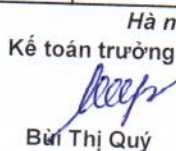 Hà n
Kế toán trưởng
Bùi Thị Quý